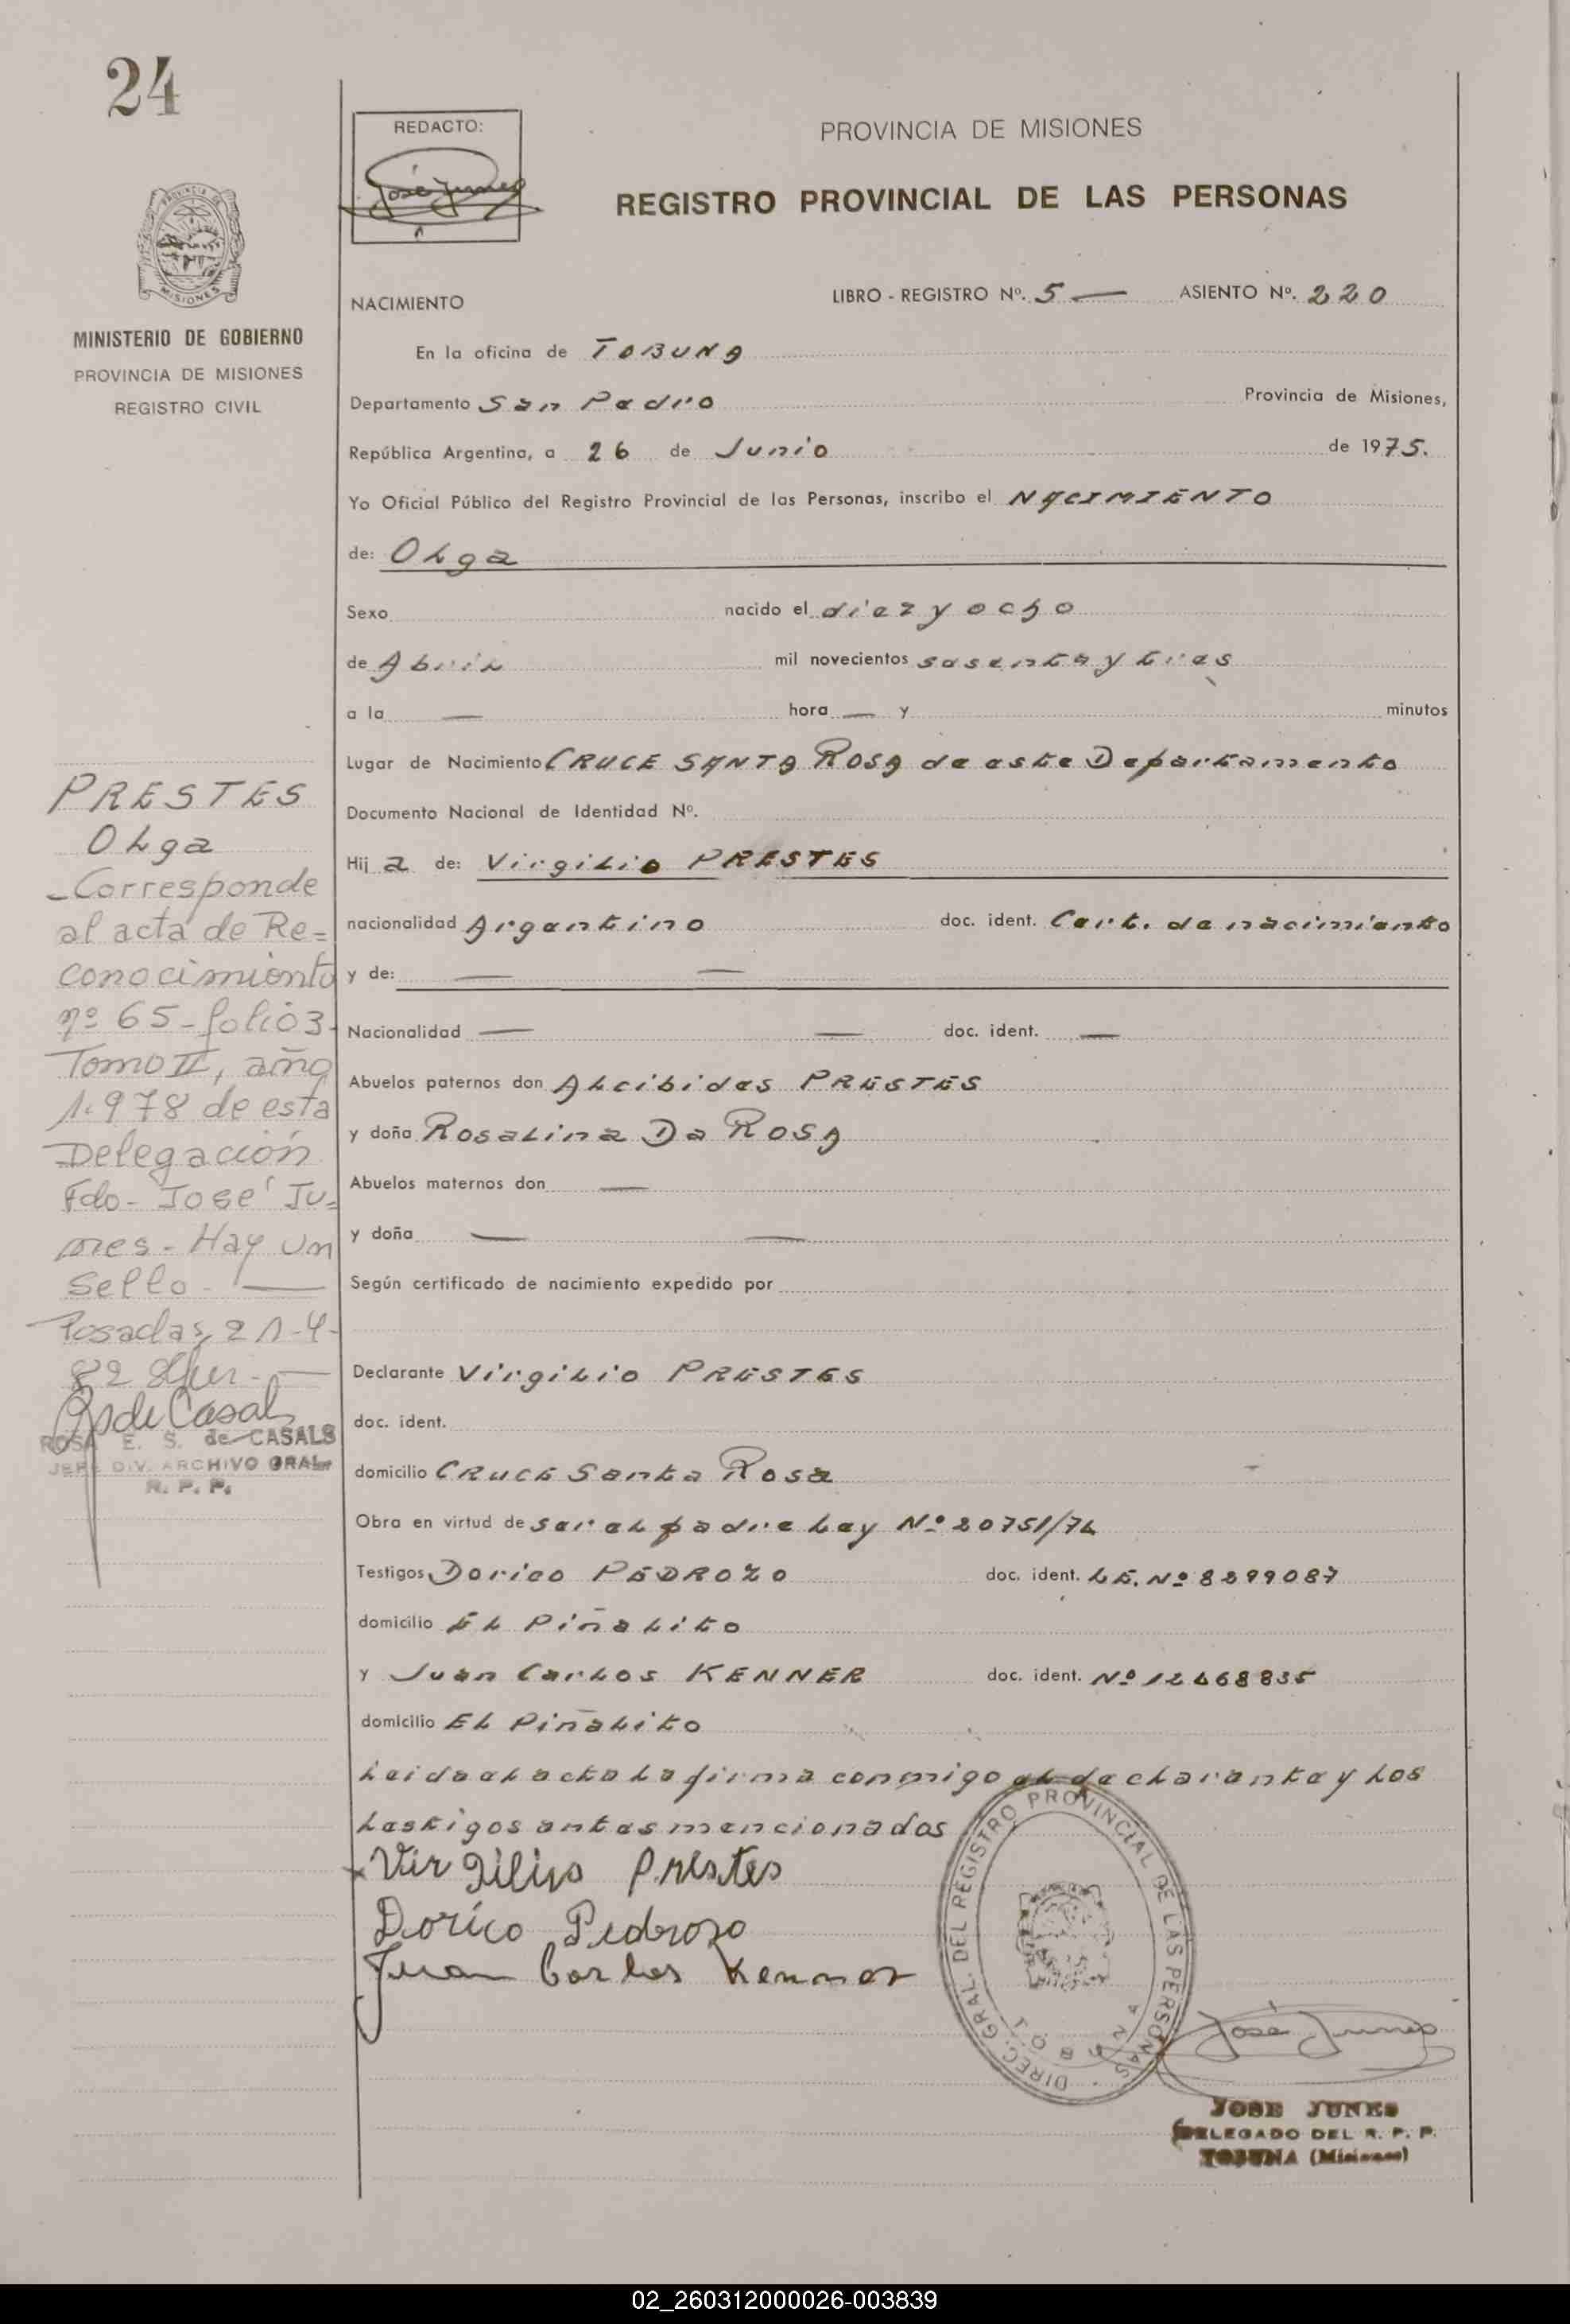 24
REDACTO:
José Junes
PROVINCIA DE MISIONES
REGISTRO PROVINCIAL DE LAS PERSONAS
PROVINCIA DE
MISIONES
MINISTERIO DE GOBIERNO
PROVINCIA DE MISIONES
REGISTRO CIVIL
NACIMIENTO LIBRO - REGISTRO Nº. 5 — ASIENTO Nº. 220
En la oficina de TOBUNA
Departamento San Pedro Provincia de Misiones,
República Argentina, a 26 de Junio de 1975.
Yo Oficial Público del Registro Provincial de las Personas, inscribo el NACIMIENTO
de: Olga
Sexo nacido el diez y ocho
de Abril mil novecientos sesenta y tres
a la — hora — y minutos
Lugar de Nacimiento CRUCE SANTA ROSA de este Departamento
Documento Nacional de Identidad Nº.
Hij a de: Virgilio PRESTES
nacionalidad Argentino doc. ident. Cert. de nacimiento
y de: — —
Nacionalidad — — doc. ident. —
Abuelos paternos don Alcibides PRESTES
y doña Rosalina Da ROSA
Abuelos maternos don —
y doña — —
Según certificado de nacimiento expedido por
Declarante Virgilio PRESTES
doc. ident.
domicilio CRUCE Santa Rosa
Obra en virtud de ser el padre Ley Nº 20751/74
Testigos Dorico PEDROZO doc. ident. L.E. Nº 8299087
domicilio El Piñalito
y Juan Carlos KENNER doc. ident. Nº 12468835
domicilio El Piñalito
Leida el acta la firma conmigo el declarante y los
testigos antes mencionados
Virgilio Prestes
Dorico Pedrozo
Juan Carlos Kenner
DIREC. GRAL. DEL REGISTRO PROVINCIAL DE LAS PERSONAS
TOBUNA
José Junes
JOSE JUNES
DELEGADO DEL R. P. P.
TOBUNA (Misiones)
PRESTES
Olga
-Corresponde
al acta de Re=
conocimiento
nº 65-folio 3-
Tomo II, año
1.978 de esta
Delegación
Fdo- José Ju=
nes- Hay un
sello- —
Posadas, 21-4-
82
de Casals
ROSA E. S. de CASALS
JEFE DIV. ARCHIVO GRAL.
R. P. P.
02_260312000026-003839